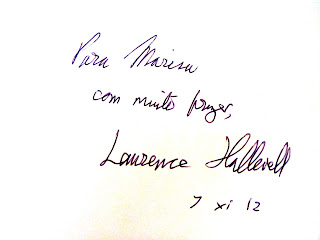 Para Marisa
com muito prazer,
Laurence Hallewell
7 xi 12